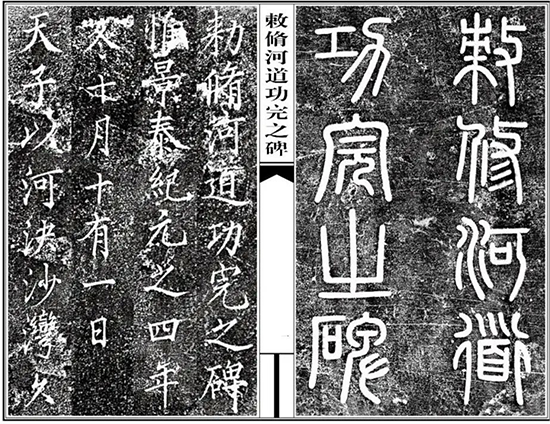 敕修河道
功完之碑
敕脩河道功完之碑
一
勑脩河道功完之碑
惟景泰紀元之四年
冬十月十有一日
天子以河決沙灣久